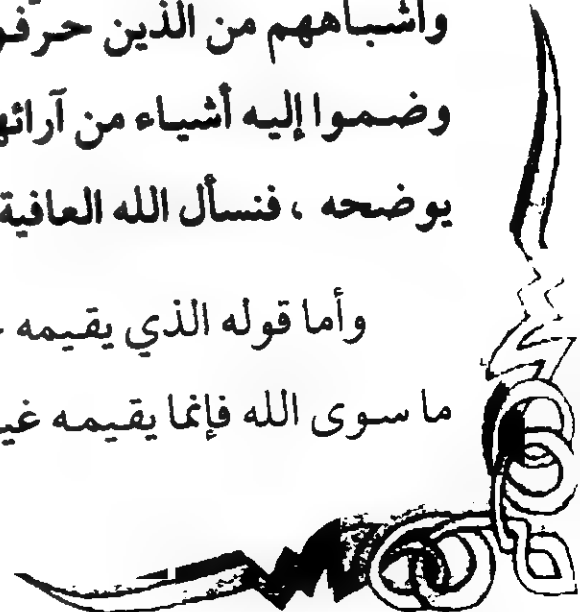 وأشباههم من الذين حرّفو
وضموا إليه أشياء من آرائه
يوضحه ، فنسأل الله العافية
وأما قوله الذي يقيمه
ما سوى الله فإنما يقيمه غي